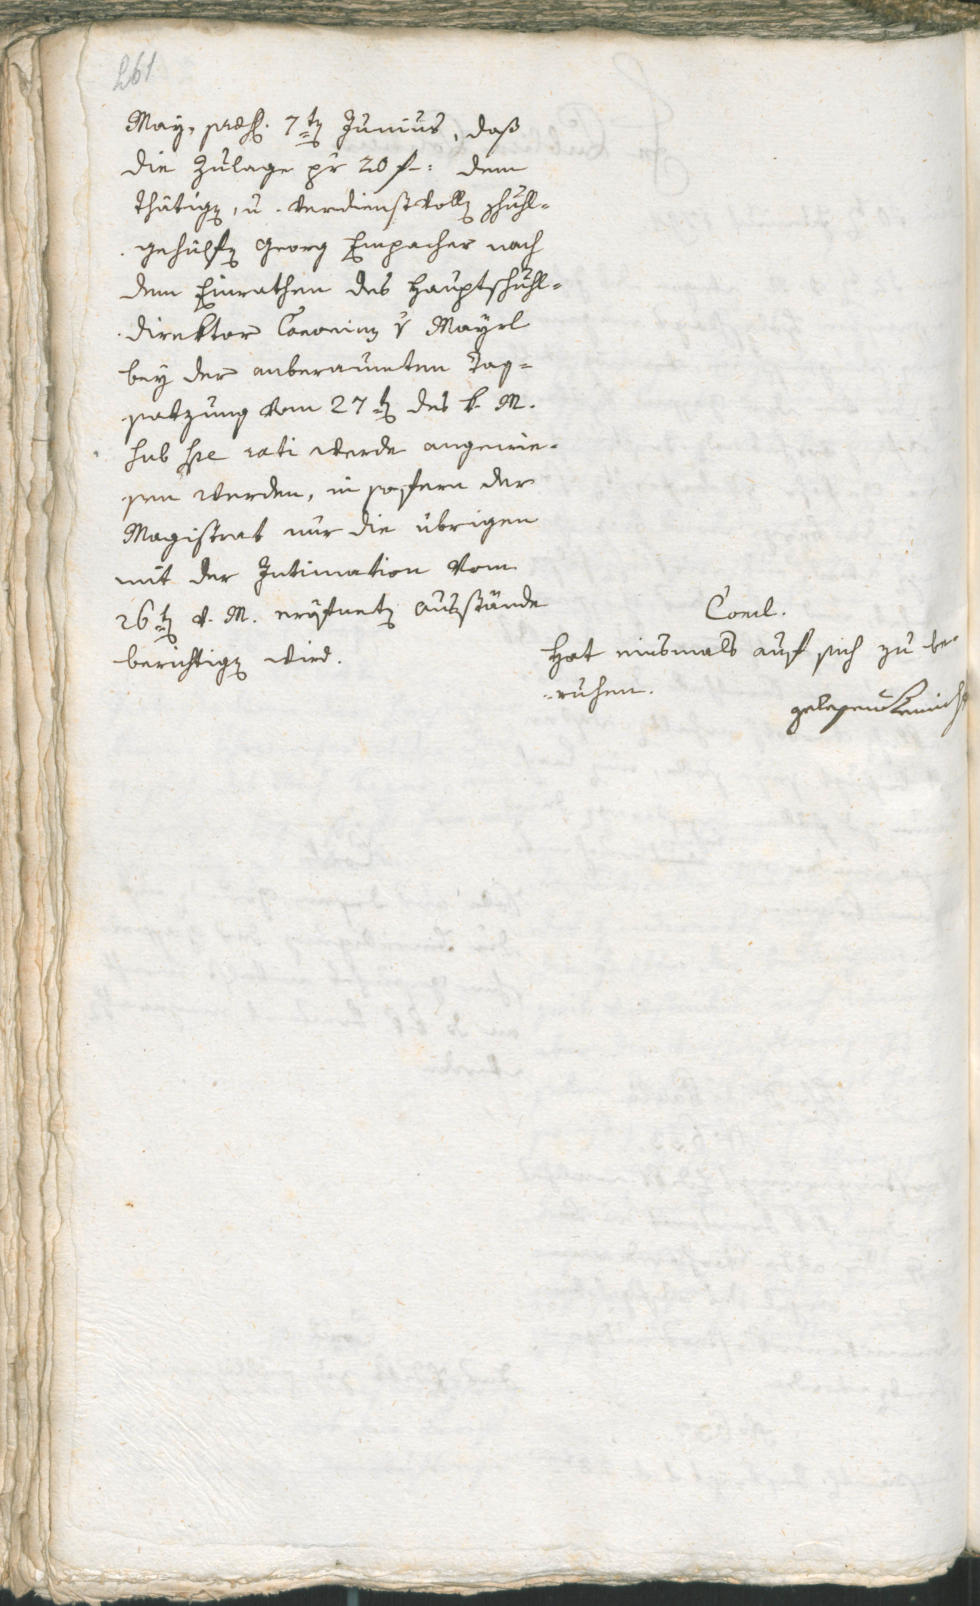 261
May, praes. 7ten Junius, daß
die Zulage pr 20 f: dem
thätigen, u. verdienstvollen Schuhl-
gehülfen Georg Empacher nach
dem Einrathen des Hauptschuhl-
direktor Canonicus v Mayrl
bey der anberaumten Tag-
satzung vom 27ten des k. M.
sub spe rati werde angewie-
sen werden, in sofern der
Magistrat nur die übrigen
mit der Intimation vom
26ten v. M. eröfneten Ausstände
berichtigen wird.
Concl.
Hat einsmals auf sich zu be-
ruhen.